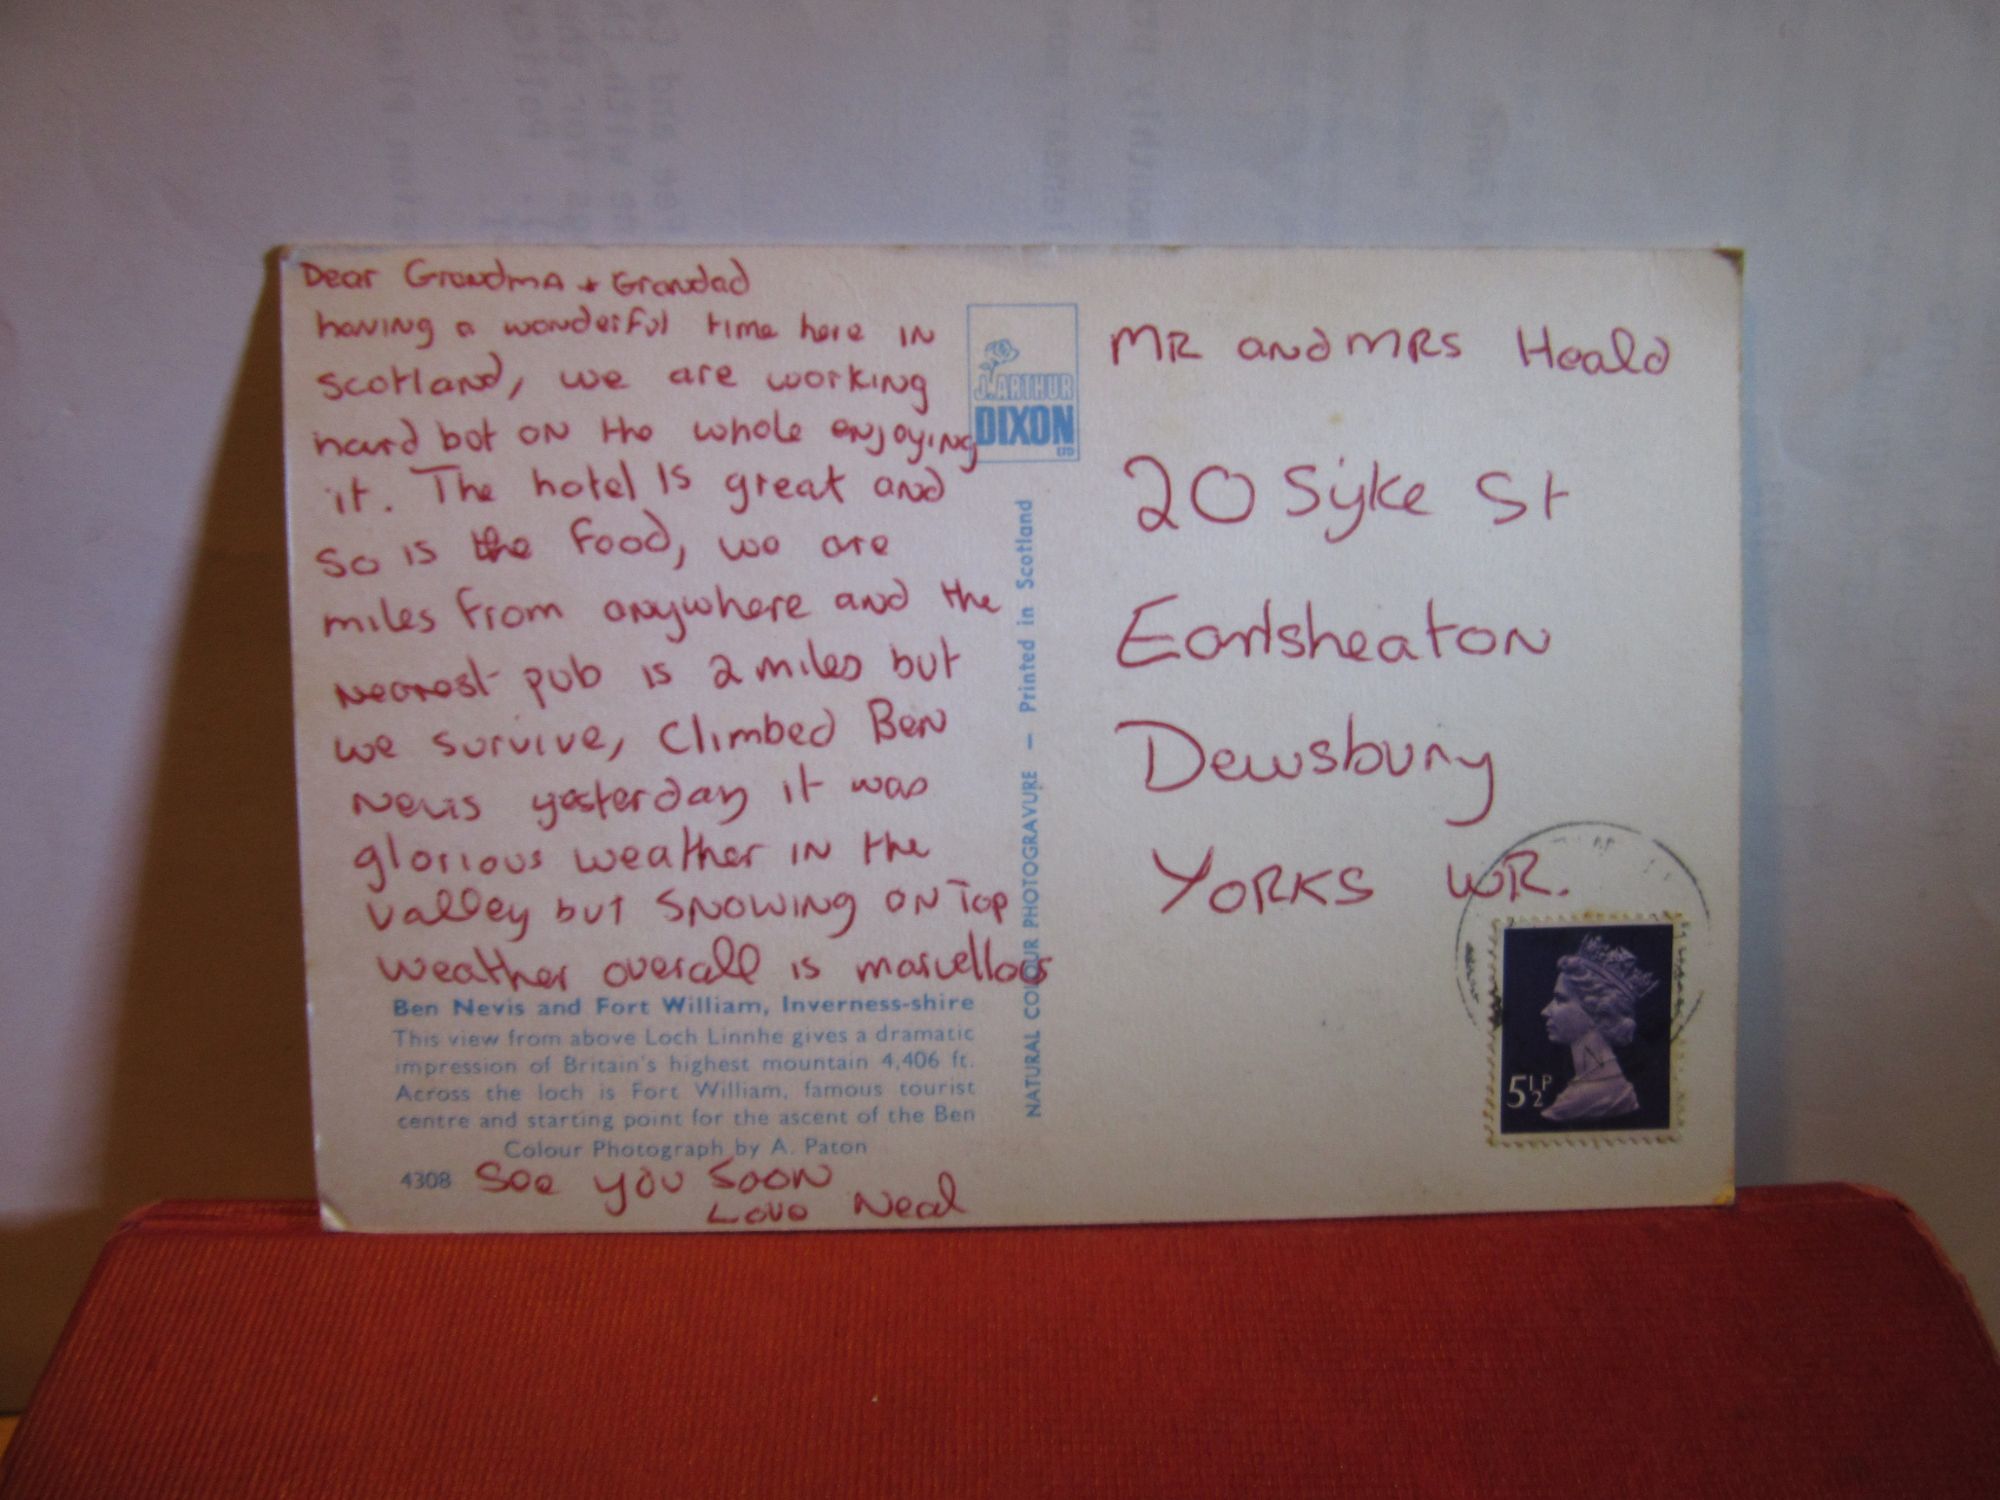 Dear Grandma + Grandad
having a wonderful time here in
scotland, we are working
hard but on the whole enjoying
it. The hotel is great and
so is the food, we are
miles from anywhere and the
nearest pub is 2 miles but
we survive, climbed Ben
Nevis yesterday it was
glorious weather in the
valley but snowing on Top
weather overall is marvellous
Ben Nevis and Fort William, Inverness-shire
This view from above Loch Linnhe gives a dramatic
impression of Britain's highest mountain 4,406 ft.
Across the loch is Fort William, famous tourist
centre and starting point for the ascent of the Ben
Colour Photograph by A. Paton
4308
See you soon
Love Neal
J. ARTHUR
DIXON
LTD
NATURAL COLOUR PHOTOGRAVURE — Printed in Scotland
MR and MRS Heald
20 Syke St
Earlsheaton
Dewsbury
YORKS WR.
5½P